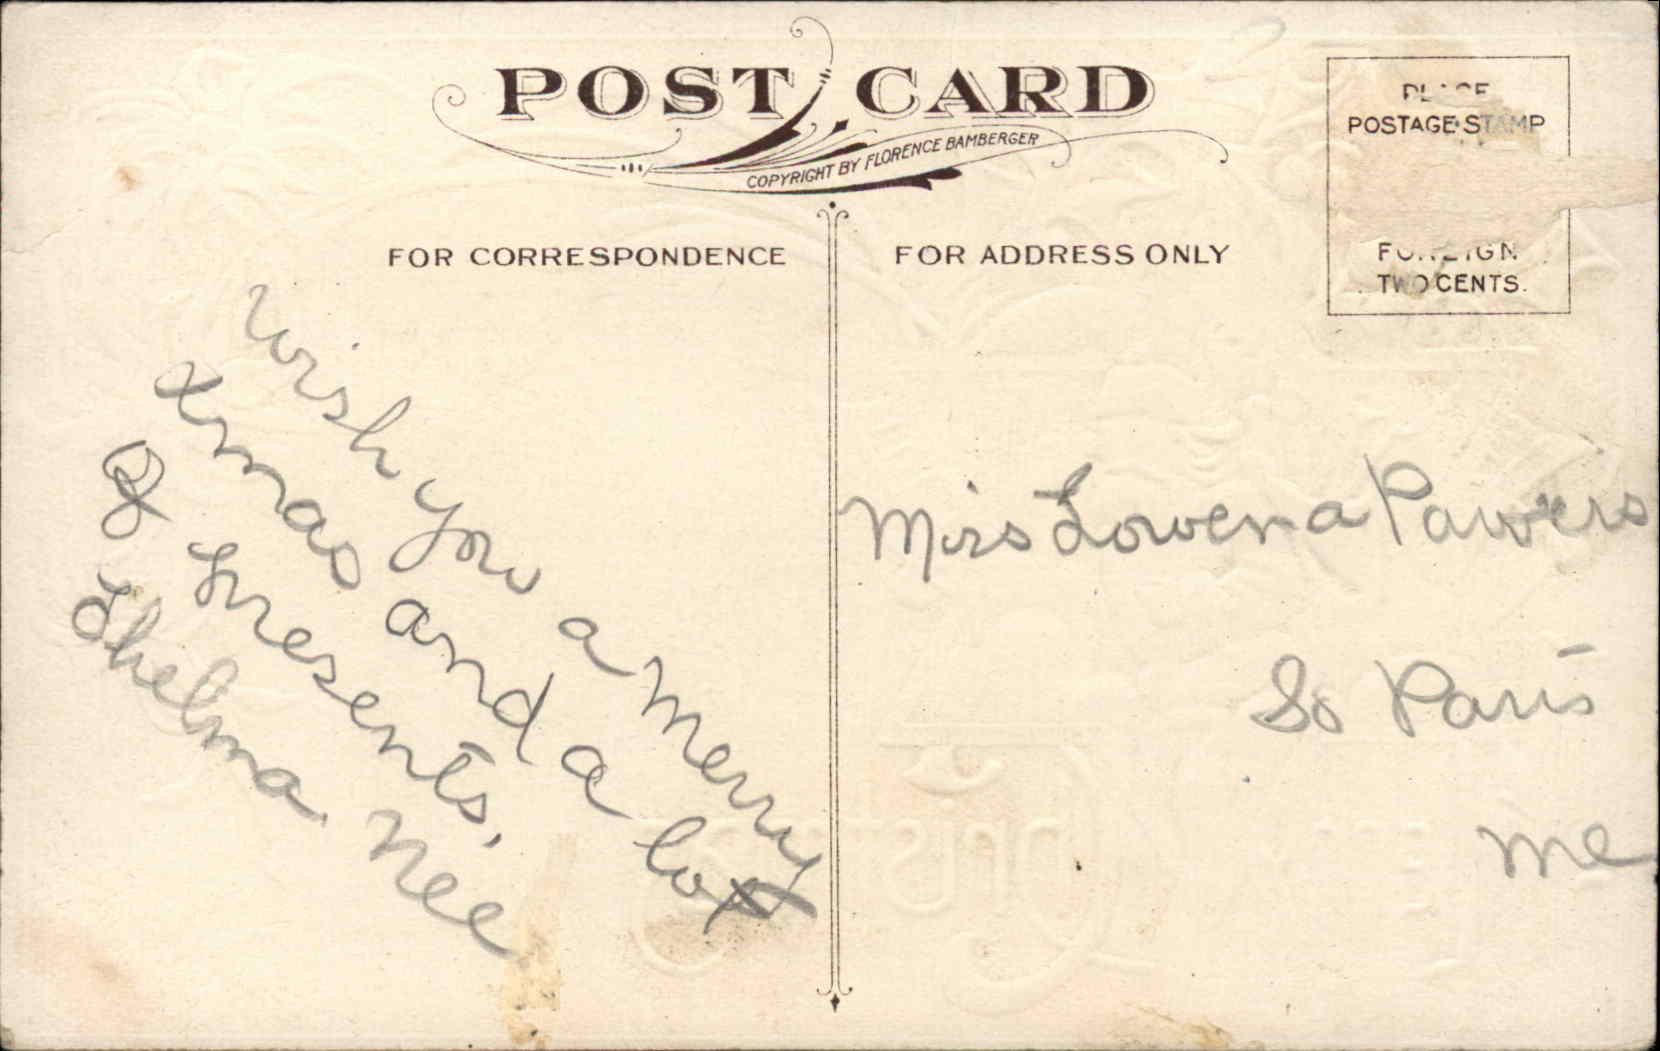 POST CARD
COPYRIGHT BY FLORENCE BAMBERGER
FOR CORRESPONDENCE
FOR ADDRESS ONLY
PLACE
POSTAGE STAMP
FOREIGN
TWO CENTS.
Wish you a Merry
Xmas and a lot
of presents,
Thelma Nee
Miss Lowena Powers
So Paris
Me